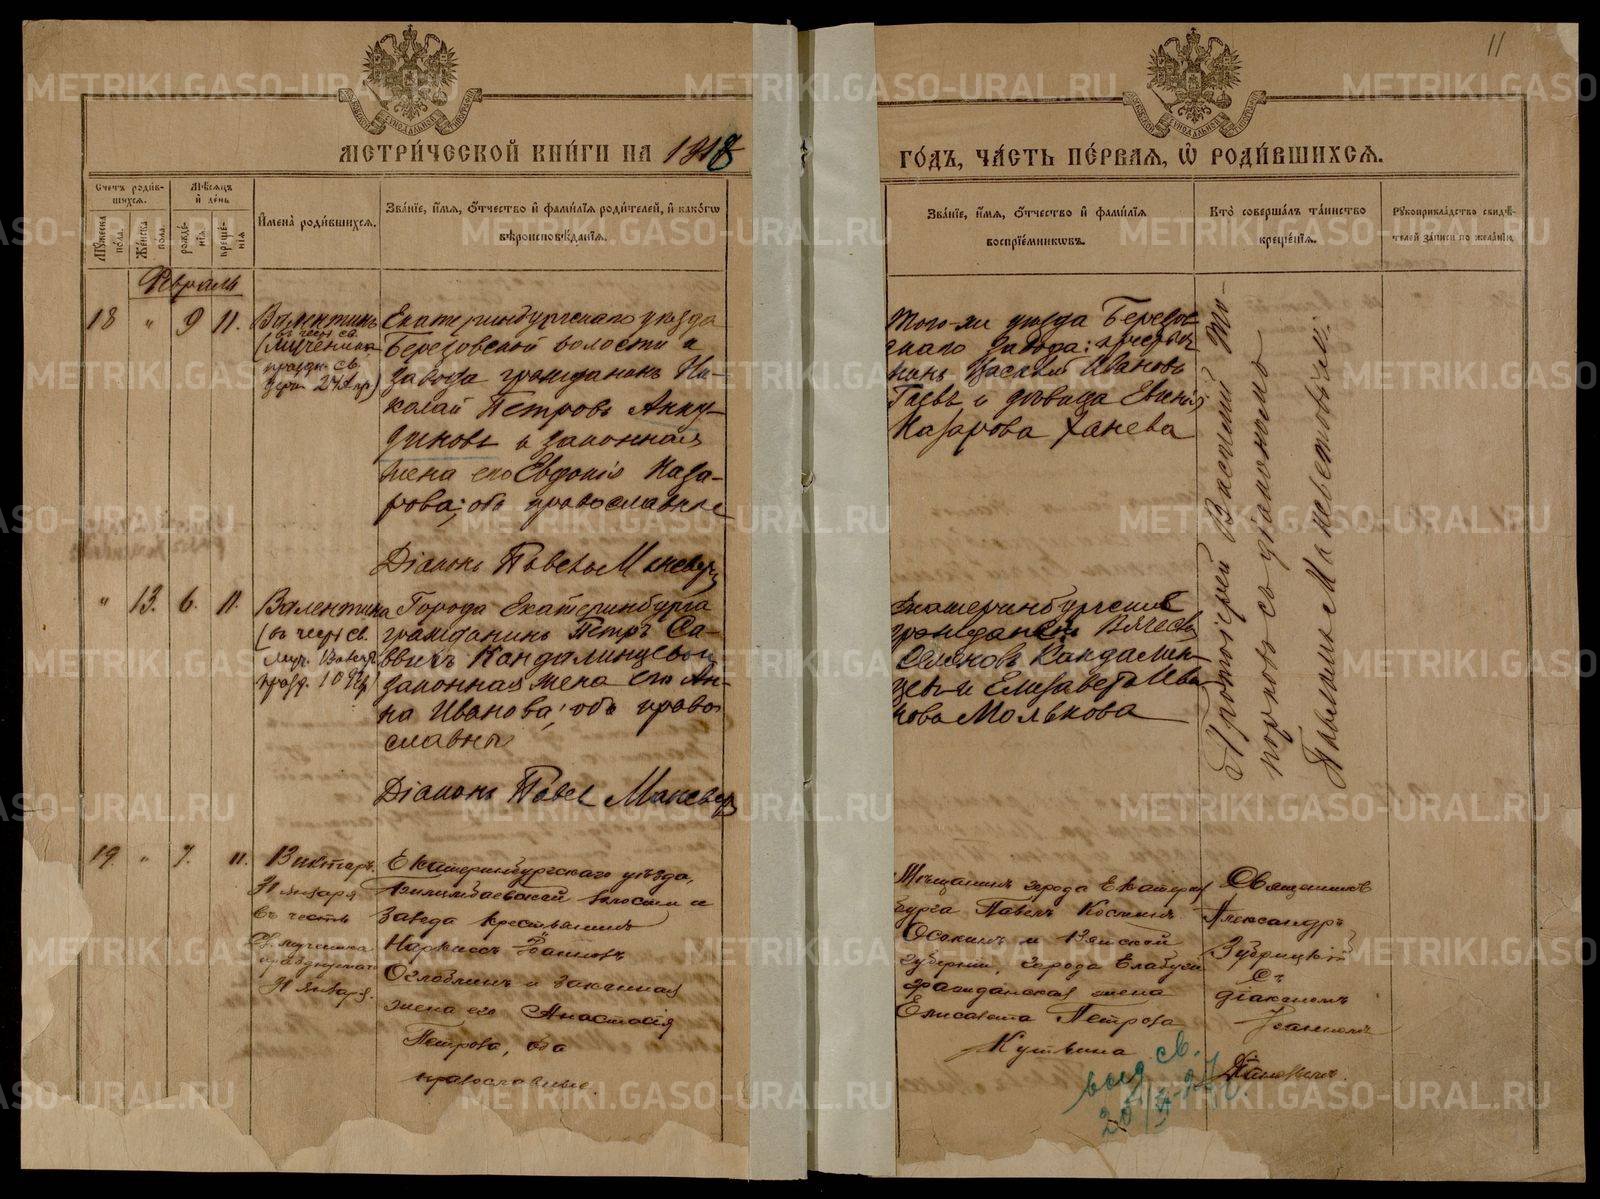 11
МЕТРИ́ЧЕСКОЙ КНИ́ГИ НА 1918
ГО́ДЪ, ЧА́СТЬ ПЕ́РВАЯ, Ѡ҆ РОДИ́ВШИХСЯ.
Счетъ роди́в-
шихся.
Мѣ́сяцъ
и҆ де́нь
Мꙋ́жеска
по́ла.
Же́нска
по́ла.
рожде́-
нїѧ.
креще́-
нїѧ
И҆мена̀ роди́вшихся.
Зва́нїе, и҆́мя, ѻ҆́тчество и҆ фами́лїя роди́телей, и҆ како́гѡ
вѣроисповѣ́данїя.
Зва́нїе, и҆́мя, ѻ҆́тчество и҆ фами́лїя
воспрїе́мниковъ.
Кто̀ соверша́лъ та́инство
креще́нїя.
Рꙋкоприкла́дство свидѣ́-
телей за́писи по жела́нїю.
Февраль
18 " 9 11.
Валентинъ
(въ честь св.
мученика
праздн. св.
24 апр.)
Екатеринбургскаго уѣзда
Березовской волости и
завода гражданинъ Ни-
колай Петровъ Анку-
диновъ и законная
жена его Евдокія Наза-
рова; оба православные
Діаконъ Павелъ
Того-же уѣзда Березов-
скаго завода: крестья-
нинъ Иванов
и дѣвица
Назарова Ханева
Протоіерей Василій
съ діакономъ
Павломъ
" 13. 6. 11.
Валентина
(въ честь св.
муч.
празд. 10 Фев)
Города Екатеринбурга
гражданинъ Петръ Са-
ввичъ Кандалинцевъ и
законная жена его Ан-
на Иванова; оба право
славны
Діаконъ Павелъ
Екатеринбургскіе
Вячесл.
Семеновъ Кандалин-
цевъ и Елизавета Ива
нова Молькова
19. " 7. 11.
Викторъ.
31 января
въ честь
Св. мученика
31 январ.
Екатеринбургскаго уѣзда,
Билимбаевской волости и
завода крестьянинъ
Наркиссъ
Оглоблинъ и законная
жена его Анастасія
Петрова, оба
православные
Мѣщанинъ города Екатерин
бурга Павелъ
Осокинъ и Вятской
губерніи, города Елабуги
гражданская жена
Елисавета Петрова
Священникъ
Александръ
Зубрицкій
съ
діакономъ
Іоанномъ
выд. св.
METRIKI.GASO-URAL.RU